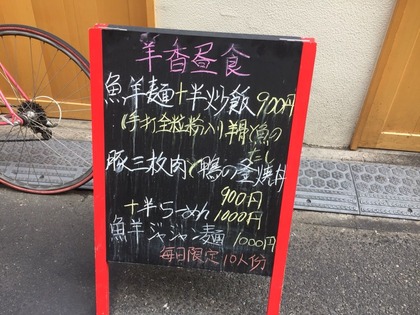 羊香昼食
魚羊麺+半炒飯 900円
(手打全粒粉入り羊骨と魚の
だし
豚三枚肉と鴨の釜焼丼
900円
+半らーめん 1000円
魚羊ジャジャン麺 1000円
毎日限定10人份